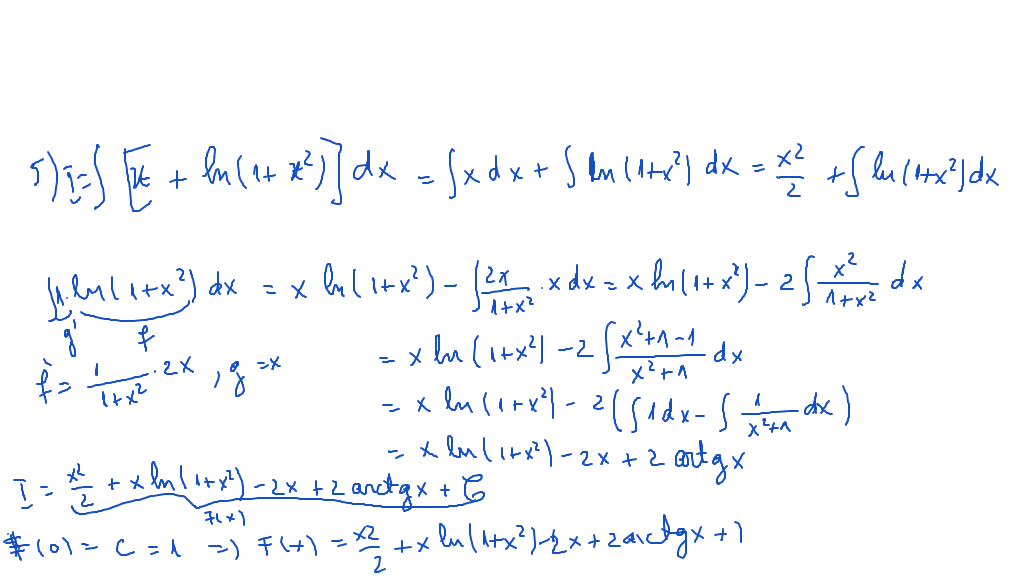 5) I = ∫ [x + ln(1+x²)] dx = ∫ x dx + ∫ ln(1+x²) dx = x²/2 + ∫ ln(1+x²) dx
∫ 1·ln(1+x²) dx = x ln(1+x²) - ∫ 2x/(1+x²) · x dx = x ln(1+x²) - 2 ∫ x²/(1+x²) dx
g' f
= x ln(1+x²) - 2 ∫ (x²+1-1)/(x²+1) dx
f' = 1/(1+x²) · 2x , g = x
= x ln(1+x²) - 2 (∫ 1 dx - ∫ 1/(x²+1) dx)
= x ln(1+x²) - 2x + 2 arctg x
I = x²/2 + x ln(1+x²) - 2x + 2 arctg x + C
F(x)
F(0) = C = 1 => F(x) = x²/2 + x ln(1+x²) - 2x + 2 arctg x + 1